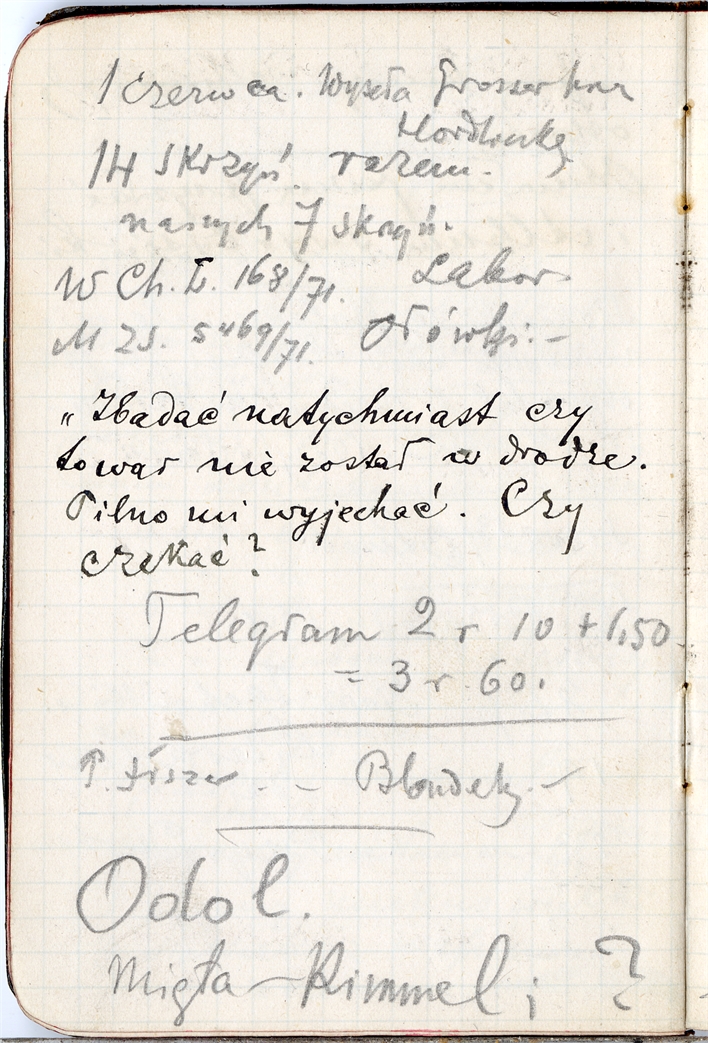 1 czerwca. Wysyła
14 skrzyń razem.
naszych 7 skrzyń.
W Ch. Ł. 168/71. Labor
M 25. 5469/71. Ołówki. -
„Zbadać natychmiast czy
towar nie został w drodze.
Pilno mi wyjechać. Czy
czekać?
Telegram 2 r 10 + 1,50
= 3 r 60.
P. - Blondek. -
Odol.
Mięta - Rimmel; ?